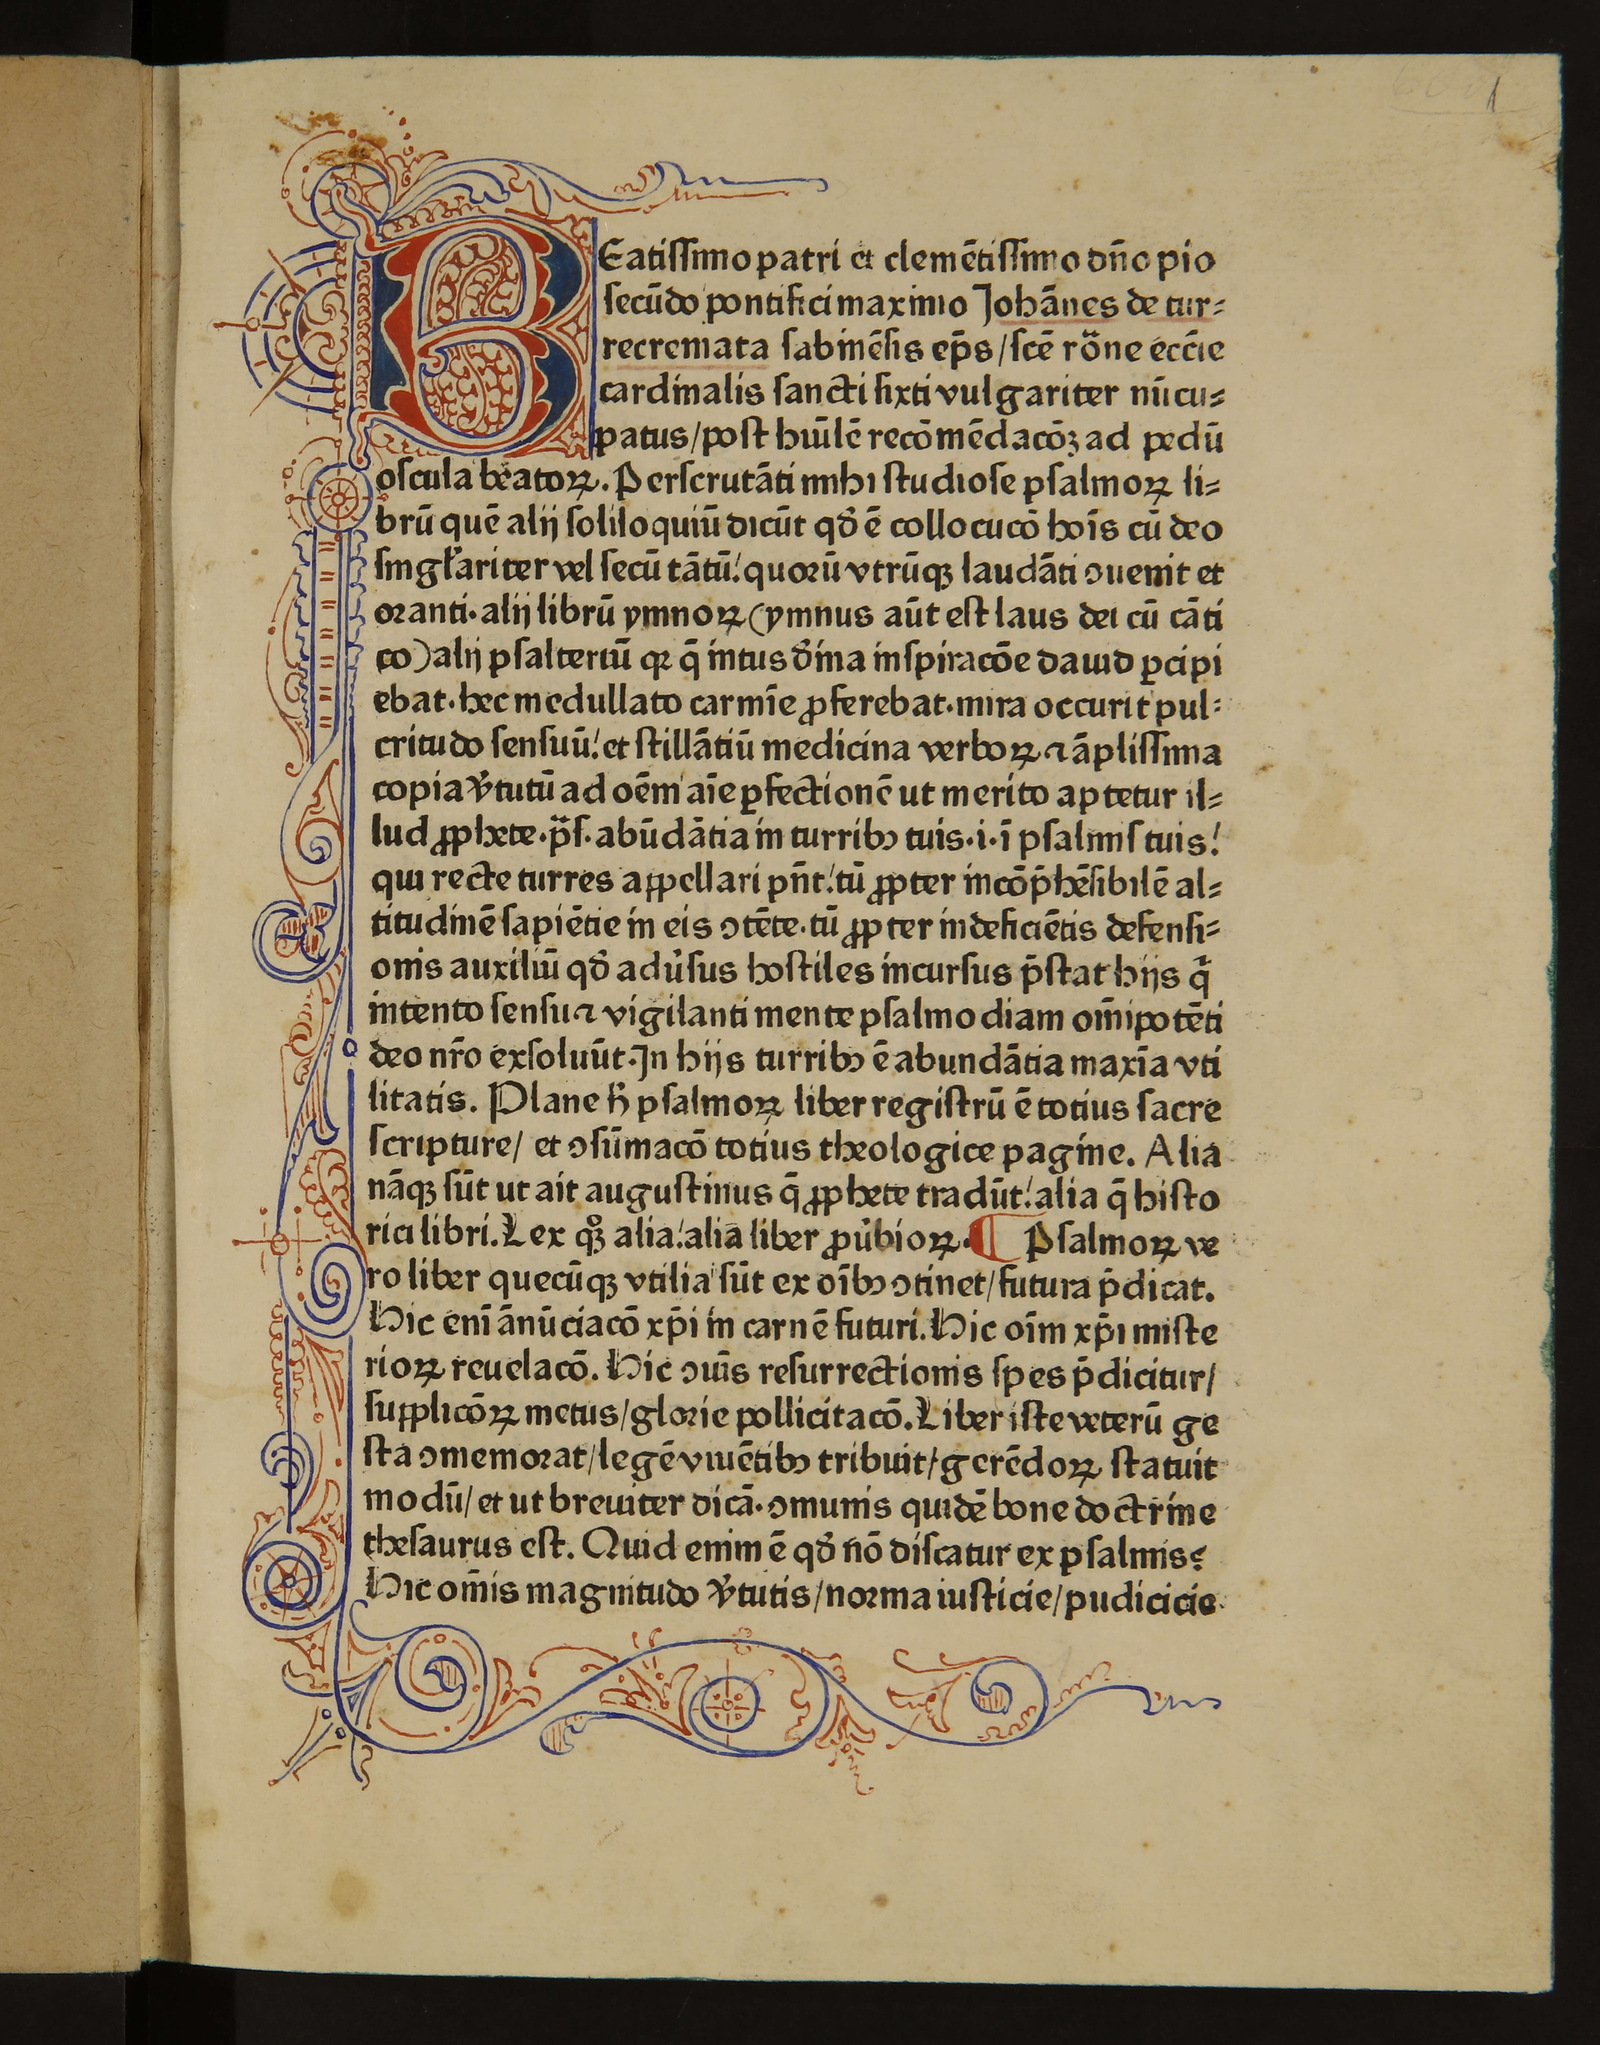 1
BEatiſſimo patri et clemētiſſimo dn̄o pio
ſecūdo pontifici maximo Johānes de tur⸗
recremata ſabinēſis ep̄s / ſcē rōne ecc̄ie
cardinalis ſancti ſixti vulgariter nūcu⸗
patus / poſt hūilē recōmēdacōꝫ ad pedū
oſcula beatoꝝ. Perſcrutāti mihi ſtudioſe pſalmoꝝ li⸗
brū quē alij ſoliloquiū dicūt qđ ē collocucō hoīs cū deo
ſingl'ariter vel ſecū tātū! quorū vtrūqꝫ laudāti ↄuenit et
oranti· alij librū ymnoꝝ (ymnus aūt eſt laus dei cū cāti
co) alij pſalteriū qꝛ q̄ intus đina inſpiracōe dauid ꝑcipi
ebat· hec medullato carmīe ꝓferebat· mira occurit pul⸗
critudo ſenſuū! et ſtillātiū medicina verboꝝ ⁊ āpliſſima
copia v̾tutū ad oēm aīe ꝑfectionē ut merito aptetur il⸗
lud ꝓphete· p̈s· abūdātia in turribꝰ tuis· i· ī pſalmiſ tuis!
qui recte turres appellari pn̄t! tū ꝓpter incōp̄hēſibilē al⸗
titudinē ſapiētie in eis ↄtēte· tū ꝓpter indeficiētis defenſi⸗
onis auxiliū qđ adu̾ſus hoſtiles incurſus p̄ſtat hijs q̄
intento ſenſu ⁊ vigilanti mente pſalmodiam om̄ipotēti
deo nr̄o exſoluūt· Jn hijs turribꝰ ē abundātia maxīa vti
litatis. Plane h̄ pſalmoꝝ liber regiſtrū ē totius ſacre
ſcripture / et ↄſūmacō totius theologice pagine. Alia
nāqꝫ ſūt ut ait auguſtinus q̄ ꝓphete tradūt! alia q̄ hiſto
rici libri. Lex qͦꝫ alia! alia liber ꝓu̾bioꝝ· ¶ Pſalmoꝝ ve
ro liber quecūqꝫ vtilia ſūt ex oībꝰ ↄtinet / futura p̄dicat.
Hic enī ānūciacō xp̄i in carnē futuri. Hic oīm xp̄i miſte
rioꝝ reuelacō. Hic ↄuīs reſurrectionis ſpes p̄dicitur /
ſupplicōꝝ metus / glorie pollicitacō. Liber iſte veterū ge
ſta ↄmemorat / legē viuētibꝰ tribuit / gerēdoꝝ ſtatuit
modū / et ut breuiter dicā· ↄmunis quidē bone doctrine
theſaurus eſt. Quid enim ē qđ nō diſcatur ex pſalmis?
Hic om̄is magnitudo v̾tutis / norma iuſticie / pudicicie